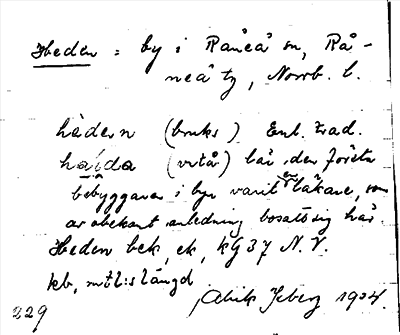 Heden = by i Råneå sn, Rå-
neå tg, Norrb. l.
hädẹn (bruks) Enl. trad.
haida (vitå) lär den förste
bebyggaren i byn varit en läkare, som
av obekant anledning bosatt sig här.
Heden bek, ek, kG 37 N.V.
kb, mtl:slängd
1934.
229